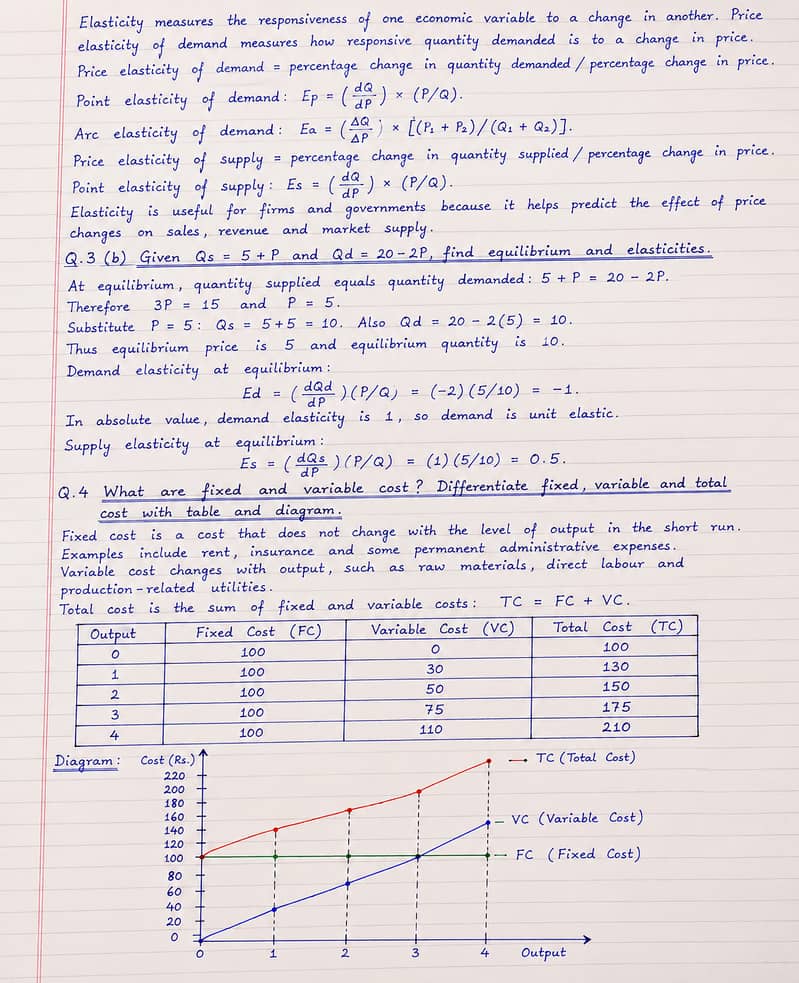 Elasticity measures the responsiveness of one economic variable to a change in another. Price
elasticity of demand measures how responsive quantity demanded is to a change in price.
Price elasticity of demand = percentage change in quantity demanded / percentage change in price.
Point elasticity of demand: Ep = (dQ/dP) × (P/Q).
Arc elasticity of demand: Ea = (ΔQ/ΔP) × [(P₁ + P₂)/(Q₁ + Q₂)].
Price elasticity of supply = percentage change in quantity supplied / percentage change in price.
Point elasticity of supply: Es = (dQ/dP) × (P/Q).
Elasticity is useful for firms and governments because it helps predict the effect of price
changes on sales, revenue and market supply.
Q.3 (b) Given Qs = 5 + P and Qd = 20 - 2P, find equilibrium and elasticities.
At equilibrium, quantity supplied equals quantity demanded: 5 + P = 20 - 2P.
Therefore 3P = 15 and P = 5.
Substitute P = 5: Qs = 5 + 5 = 10. Also Qd = 20 - 2(5) = 10.
Thus equilibrium price is 5 and equilibrium quantity is 10.
Demand elasticity at equilibrium:
Ed = (dQd/dP)(P/Q) = (-2)(5/10) = -1.
In absolute value, demand elasticity is 1, so demand is unit elastic.
Supply elasticity at equilibrium:
Es = (dQs/dP)(P/Q) = (1)(5/10) = 0.5.
Q.4 What are fixed and variable cost? Differentiate fixed, variable and total
cost with table and diagram.
Fixed cost is a cost that does not change with the level of output in the short run.
Examples include rent, insurance and some permanent administrative expenses.
Variable cost changes with output, such as raw materials, direct labour and
production-related utilities.
Total cost is the sum of fixed and variable costs: TC = FC + VC.
Output Fixed Cost (FC) Variable Cost (VC) Total Cost (TC)
0 100 0 100
1 100 30 130
2 100 50 150
3 100 75 175
4 100 110 210
Diagram: Cost (Rs.)
TC (Total Cost)
220
200
180
160
VC (Variable Cost)
140
120
100
FC (Fixed Cost)
80
60
40
20
0
0 1 2 3 4 Output